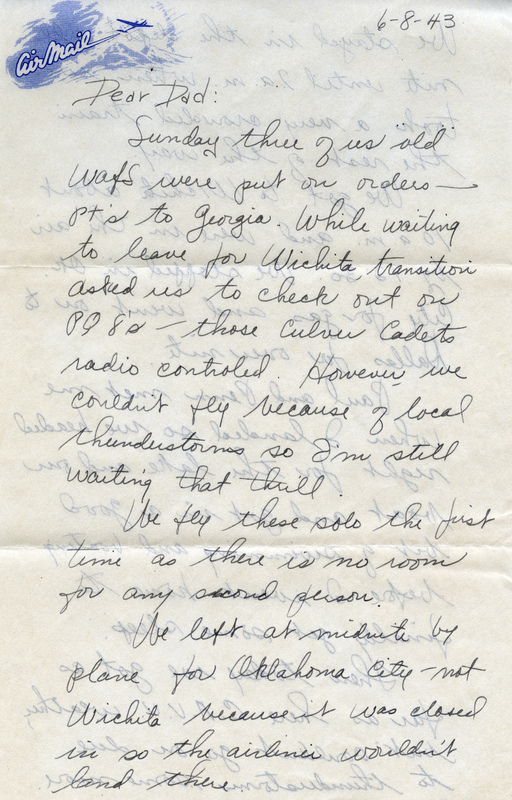 6-8-43
Air Mail
Dear Dad:
Sunday three of us old
WAFS were put on orders—
PT's to Georgia. While waiting
to leave for Wichita transition
asked us to check out on
PQ 8's – those Culver Cadets
radio controled. However, we
couldn't fly because of local
thunderstorms so I'm still
waiting that thrill.
We fly these solo the first
time as there is no room
for any second person.
We left at midnite by
plane for Oklahoma City – not
Wichita because it was closed
in so the airliner wouldn't
land there.